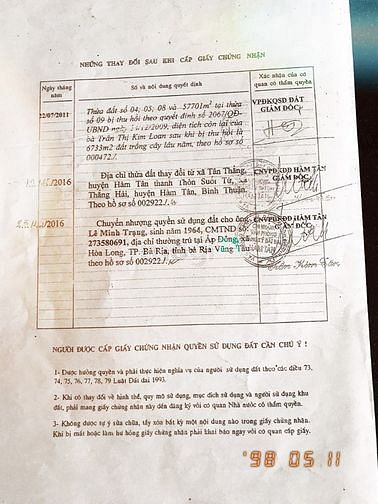 NHỮNG THAY ĐỔI SAU KHI CẤP GIẤY CHỨNG NHẬN
Ngày tháng năm
Số và nội dung quyết định
Xác nhận của cơ quan có thẩm quyền
22/07/2011
Thửa đất số 04; 05; 08 và 57701m² tại thửa
số 09 bị thu hồi theo quyết định số 2067/QĐ-
UBND ngày /12/2009, diện tích còn lại của
bà Trần Thị Kim Loan sau khi bị thu hồi là
6733m2 đất trồng cây lâu năm, theo hồ sơ số
000472./.
VPĐKQSD ĐẤT
GIÁM ĐỐC
/2016
Địa chỉ thửa đất thay đổi từ xã Tân Thắng,
huyện Hàm Tân thành Thôn Suối Tứ, xã
Thắng Hải, huyện Hàm Tân, Bình Thuận.
Theo hồ sơ số 002922./.
CNVPĐKĐĐ HÀM TÂN
GIÁM ĐỐC
/2016
Chuyển nhượng quyền sử dụng đất cho ông
Lê Minh Trạng, sinh năm 1964, CMTND số
273580691, địa chỉ thường trú tại Ấp Đông, xã
Hòa Long, TP. Bà Rịa, tỉnh bà Rịa Vũng Tàu
theo hồ sơ số 002922./.
CNVPĐKĐĐ HÀM TÂN
GIÁM ĐỐC
NGƯỜI ĐƯỢC CẤP GIẤY CHỨNG NHẬN QUYỀN SỬ DỤNG ĐẤT CẦN CHÚ Ý !
1- Được hưởng quyền và phải thực hiện nghĩa vụ của người sử dụng đất theo các điều 73,
74, 75, 76, 77, 78, 79 Luật Đất đai 1993.
2- Khi có thay đổi về hình thể, quy mô sử dụng, mục đích sử dụng và người sử dụng khu
đất, phải mang giấy chứng nhận này đến đăng ký với cơ quan Nhà nước có thẩm quyền.
3- Không được tự ý sửa chữa, tẩy xóa bất kỳ một nội dung nào trong giấy chứng nhận.
Khi bị mất hoặc làm hư hỏng giấy chứng nhận phải khai báo ngay với cơ quan cấp giấy.
'98 05 11